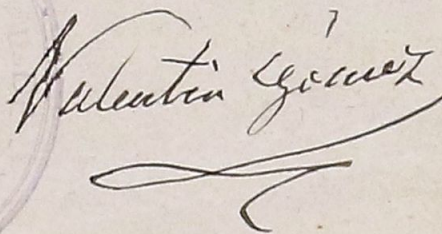 Valentin Gómez